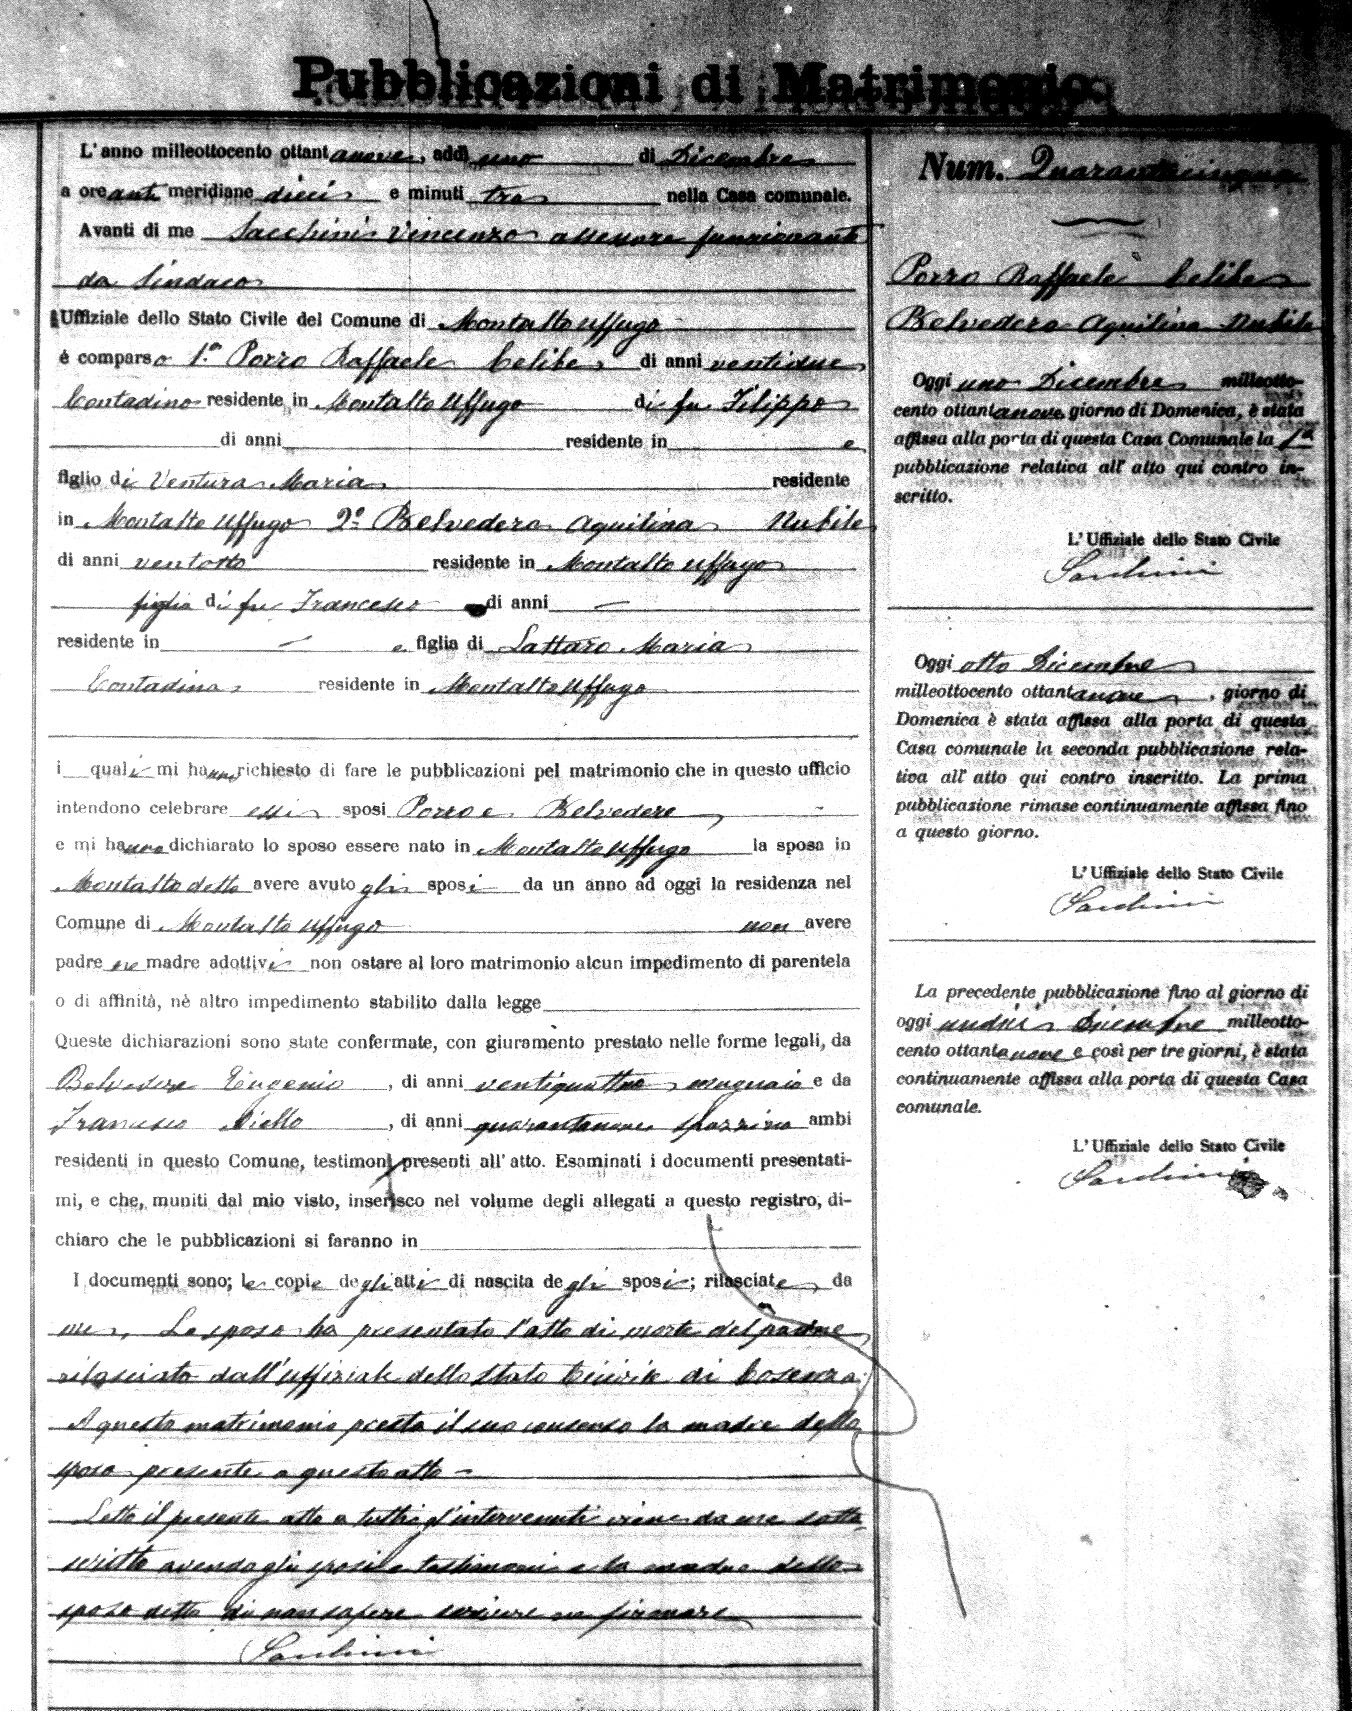 Pubblicazioni di Matrimonio
L'anno milleottocento ottantanove, addì uno di Dicembre
a ore anti meridiane dieci e minuti tre nella Casa comunale.
Avanti di me Sacchini Vincenzo assessore funzionante
da Sindaco
Uffiziale dello Stato Civile del Comune di Montalto Uffugo
è comparso 1.º Porro Raffaele Celibe di anni ventidue
Contadino residente in Montalto Uffugo di fu Filippo
di anni residente in e
figlio di Ventura Maria residente
in Montalto Uffugo 2º Belvedere Aquilina Nubile
di anni ventotto residente in Montalto Uffugo
figlia di fu Francesco di anni —
residente in — e figlia di Lattaro Maria
Contadina residente in Montalto Uffugo
i quali mi hanno richiesto di fare le pubblicazioni pel matrimonio che in questo ufficio
intendono celebrare essi sposi Porro e Belvedere
e mi hanno dichiarato lo sposo essere nato in Montalto Uffugo la sposa in
Montalto detto avere avuto gli sposi da un anno ad oggi la residenza nel
Comune di Montalto Uffugo non avere
padre ne madre adottivi non ostare al loro matrimonio alcun impedimento di parentela
o di affinità, nè altro impedimento stabilito dalla legge
Queste dichiarazioni sono state confermate, con giuramento prestato nelle forme legali, da
Belvedere Eugenio, di anni ventiquattro mugnaio e da
Francesco Aiello, di anni quarantanove spazzino ambi
residenti in questo Comune, testimoni presenti all'atto. Esaminati i documenti presentati-
mi, e che, muniti dal mio visto, inserisco nel volume degli allegati a questo registro, di-
chiaro che le pubblicazioni si faranno in
I documenti sono; le copie degli atti di nascita degli sposi; rilasciate da
me. Lo sposo ha presentato l'atto di morte del padre
rilasciato dall'uffiziale dello Stato Civile di Cosenza.
A questo matrimonio presta il suo consenso la madre dello
sposo presente a questo atto —
Letto il presente atto a tutti gl'intervenuti viene da me sotto
scritto avendo gli sposi e testimoni e la madre dello
sposo detto di non sapere scrivere ne firmare
Sacchini
Num. Quarantacinque
Porro Raffaele Celibe
Belvedere Aquilina Nubile
Oggi uno Dicembre milleotto-
cento ottantanove giorno di Domenica, è stata
affissa alla porta di questa Casa Comunale la 1ª
pubblicazione relativa all'atto qui contro in-
scritto.
L'Uffiziale dello Stato Civile
Sacchini
Oggi otto Dicembre
milleottocento ottantanove, giorno di
Domenica è stata affissa alla porta di questa
Casa comunale la seconda pubblicazione rela-
tiva all'atto qui contro inscritto. La prima
pubblicazione rimase continuamente affissa fino
a questo giorno.
L'Uffiziale dello Stato Civile
Sacchini
La precedente pubblicazione fino al giorno di
oggi undici Dicembre milleotto-
cento ottantanove e così per tre giorni, è stata
continuamente affissa alla porta di questa Casa
comunale.
L'Uffiziale dello Stato Civile
Sacchini